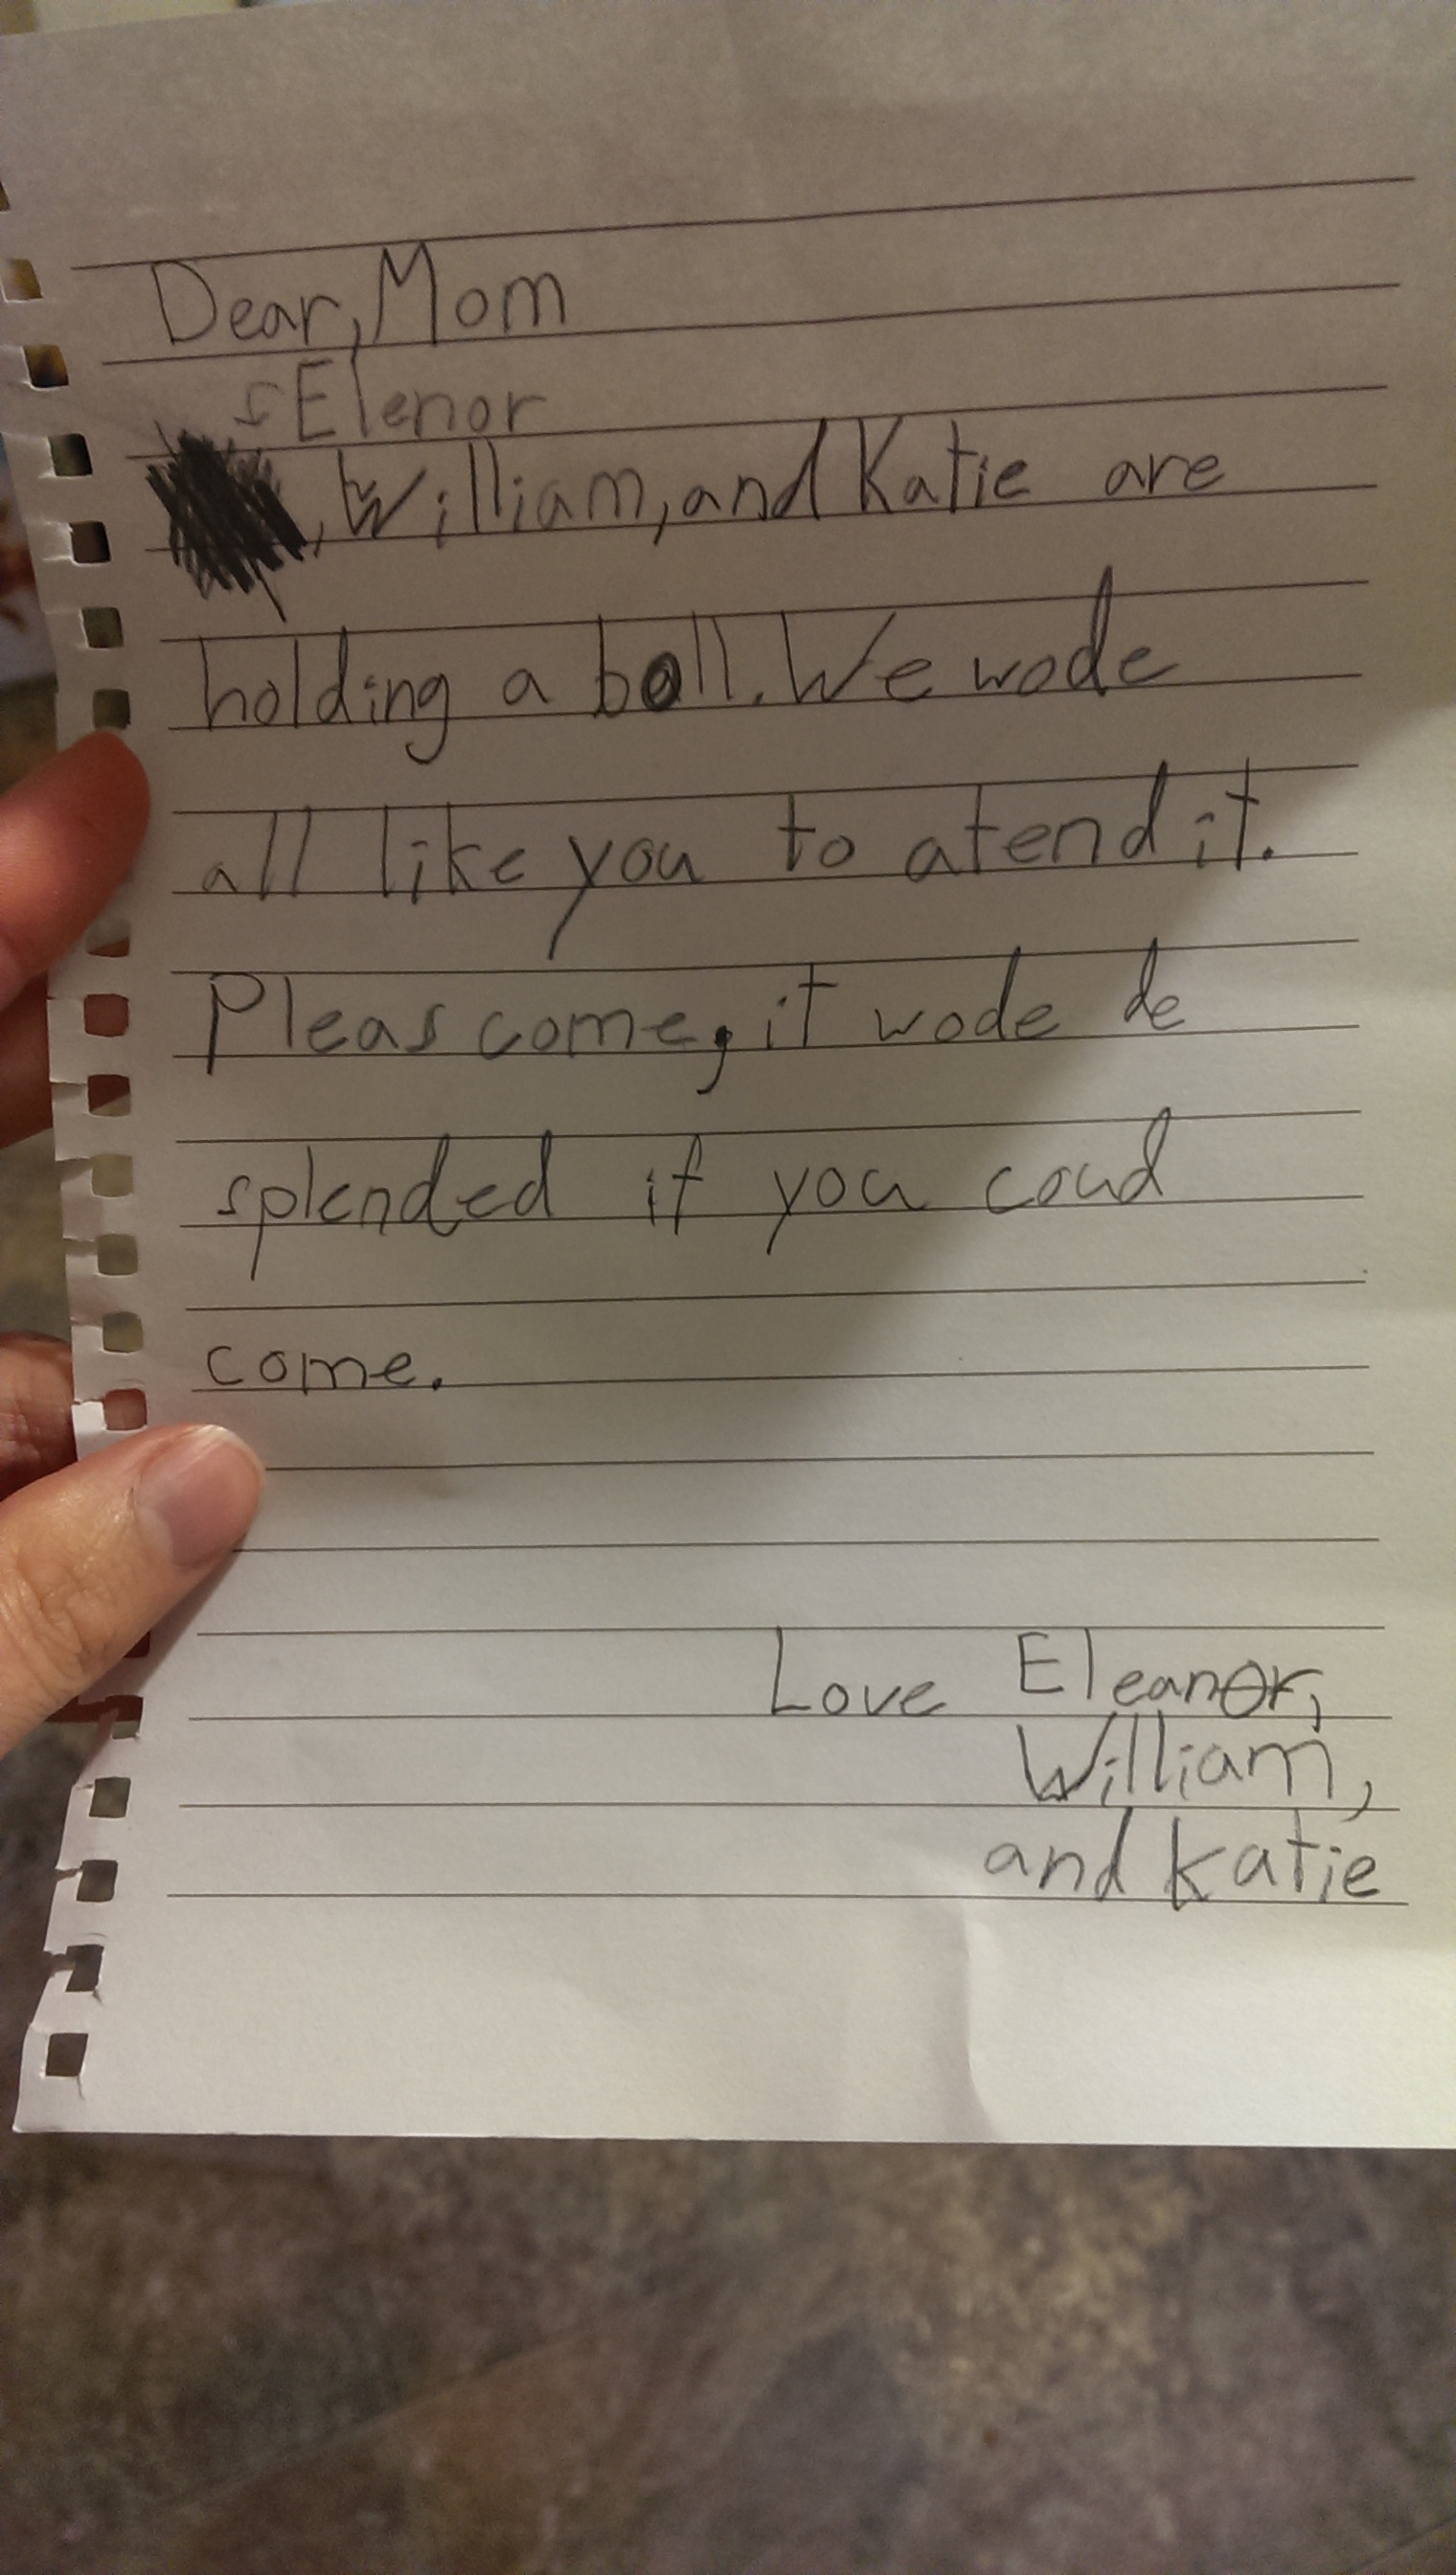 Dear, Mom
Elenor
, William, and Katie are
holding a ball. We wode
all like you to atend it.
Pleas come, it wode de
splended if you coud
come.
Love Eleanor,
William,
and Katie